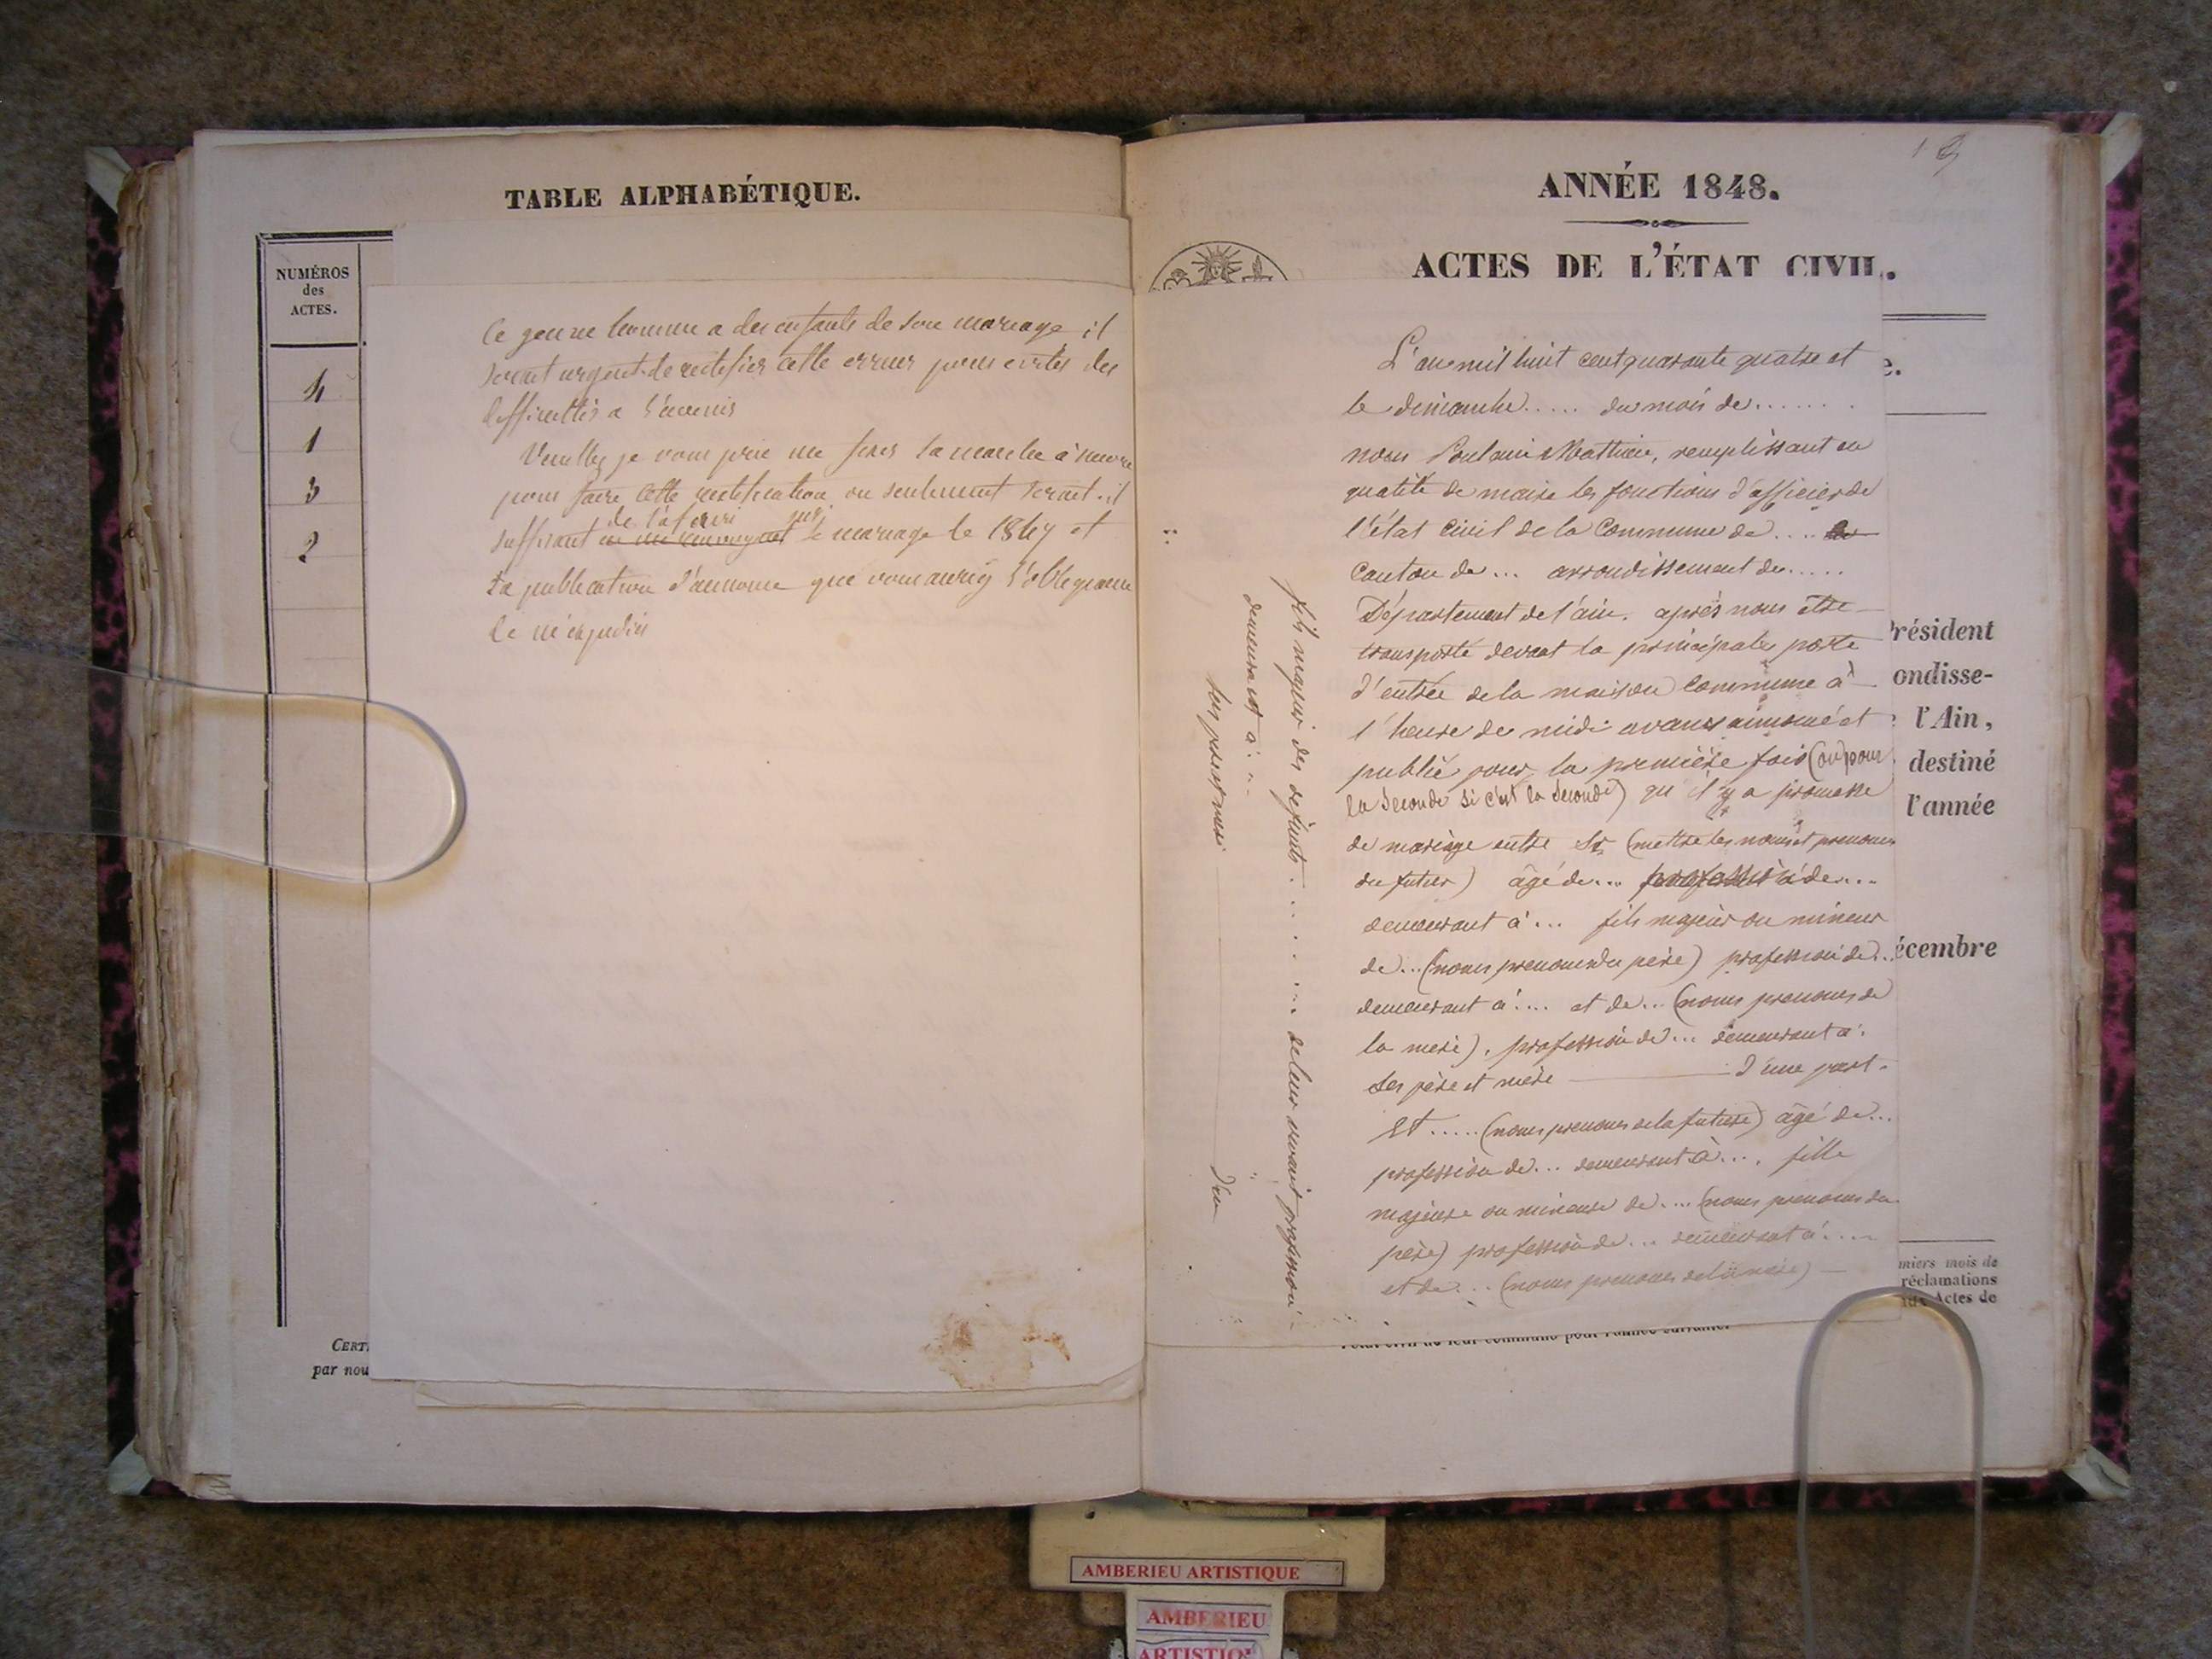 TABLE ALPHABÉTIQUE.
NUMÉROS
des
ACTES.
4
1
3
2
Ce jeune homme a des enfants de son mariage il
serait urgent de rectifier cette erreur pour eviter des
difficultés a l'avenir
Veuillez je vous prie me fixer la marche à suivre
pour faire cette rectification ou seulement serait-il
de l'aferir sur
suffisant le mariage de 1847 et
la publication d'annonce que vous auriez l'obligeance
de m'expedier
CERT
par nou
ANNÉE 1848.
ACTES DE L'ÉTAT CIVIL.
L'an mil huit cent quarante quatre et
le dimanche..... du mois de.......
nous Mathieu, remplissant en
qualité de maire les fonctions d'officier de
l'état civil de la Commune de....
Canton de... arrondissement de.....
Département de l'ain. après nous être
transporté devant la principale porte
d'entrée de la maison commune à
l'heure de midi avons annoncé et
publié pour la première fois (ou pour
la seconde si c'est la seconde) qu'il y a promesse
de mariage entre Sr (mettre les noms et prenoms
du futur) âgé de... profession de...
demeurant à... fils majeur ou mineur
de...(noms prenoms du père) profession de..
demeurant à.... et de...(noms prenoms de
la mere), profession de... demeurant à.
ses père et mère d'une part.
Et.....(noms prenoms de la future) âgé de...
profession de... demeurant à.... fille
majeure ou mineure de....(noms prenoms du
père) profession de... demeurant à....
et de...(noms prenoms de la mère)
fils majeur des defunts . . . . . . de leur vivant profession
demeurant à...
ses père et mère d'un
e.
Président
ondisse-
l'Ain,
destiné
l'année
écembre
miers mois de
réclamations
aux Actes de
l'état civil de leur commune pour l'année suivante.
AMBERIEU ARTISTIQUE
AMBERIEU
ARTISTIQ